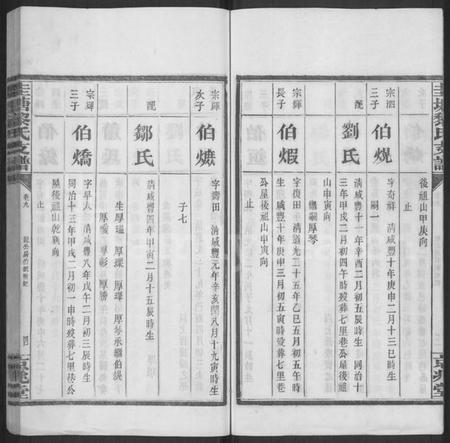 圭塘黎氏支譜
後祖山甲庚向
止
宗泗
三子
伯焜
字奇祥 清咸豐十年庚申二月十三巳時生
嗣一
配
劉氏
清咸豐十一年辛酉二月初五辰時生 同治十
三年甲戌二月初四午時歿葬七里巷公屋後祖
山申寅向
繼嗣厚琴
宗輝
長子
伯煆
字復田 清道光二十五年乙巳五月初五午時
生 咸豐十年庚申三月初五寅時歿葬七里巷
公屋後祖山申寅向
止
宗輝
次子
伯爊
字壽田 清咸豐元年辛亥閏八月十九寅時生
子七
配
鄒氏
清咸豐四年甲寅二月十五辰時生
生厚 厚 厚 厚琴承繼伯
厚 厚彩 厚勝
宗輝
三子
伯燆
字旱人 清咸豐八年戊午二月初三辰時生
同治十三年甲戌二月初一申時歿葬七里巷公
屋後祖山乾巽向
止
圭塘黎氏支譜
卷九
四
京兆堂